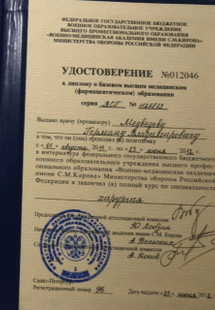 ФЕДЕРАЛЬНОЕ ГОСУДАРСТВЕННОЕ БЮДЖЕТНОЕ
ВОЕННОЕ ОБРАЗОВАТЕЛЬНОЕ УЧРЕЖДЕНИЕ
ВЫСШЕГО ПРОФЕССИОНАЛЬНОГО ОБРАЗОВАНИЯ
«ВОЕННО-МЕДИЦИНСКАЯ АКАДЕМИЯ ИМЕНИ С.М.КИРОВА»
МИНИСТЕРСТВА ОБОРОНЫ РОССИЙСКОЙ ФЕДЕРАЦИИ
УДОСТОВЕРЕНИЕ №012046
к диплому о базовом высшем медицинском
(фармацевтическом) образовании
серия №
Выдано врачу (провизору) Медведеву
Герману Владимировичу
в том, что он (она) прошел(а) подготовку
с «01» августа 2011 г. по «23» июня 2012 г.
в интернатуре федерального государственного бюджетного
военного образовательного учреждения высшего профес-
сионального образования «Военно-медицинская академия
имени С.М.Кирова» Министерства обороны Российской
Федерации и закончил (а) полный курс по специальности
хирургия
аттестационной комиссии
академии имени С.М. Кирова
аттестационной комиссии
Санкт-Петербург
Регистрационный номер 96
Дата выдачи «23» июня 2012 г.